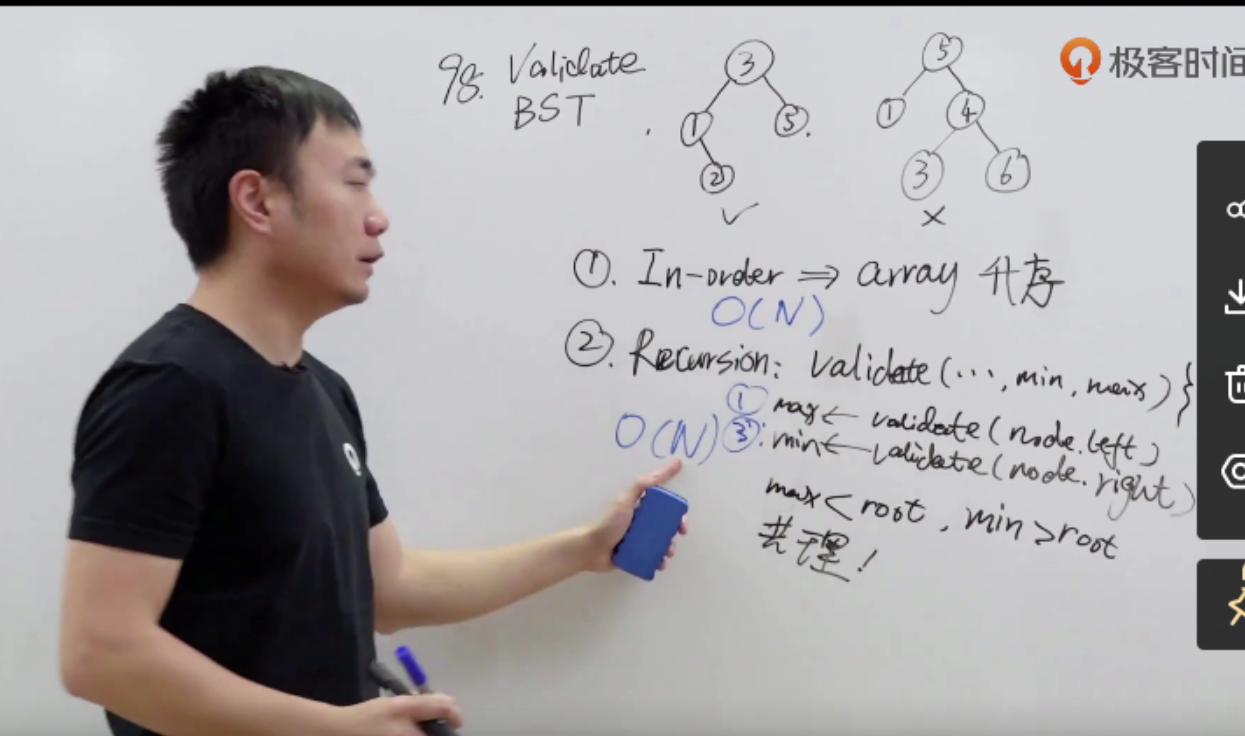 极客时间
98. Validate
BST
3
1
5
2
✓
5
1
4
3
6
×
①. In-order ⇒ array 升序
O(N)
②. Recursion: validate(…, min, max) }
① max ← validate(node.left)
O(N) ③: min ← validate(node.right)
max < root, min > root